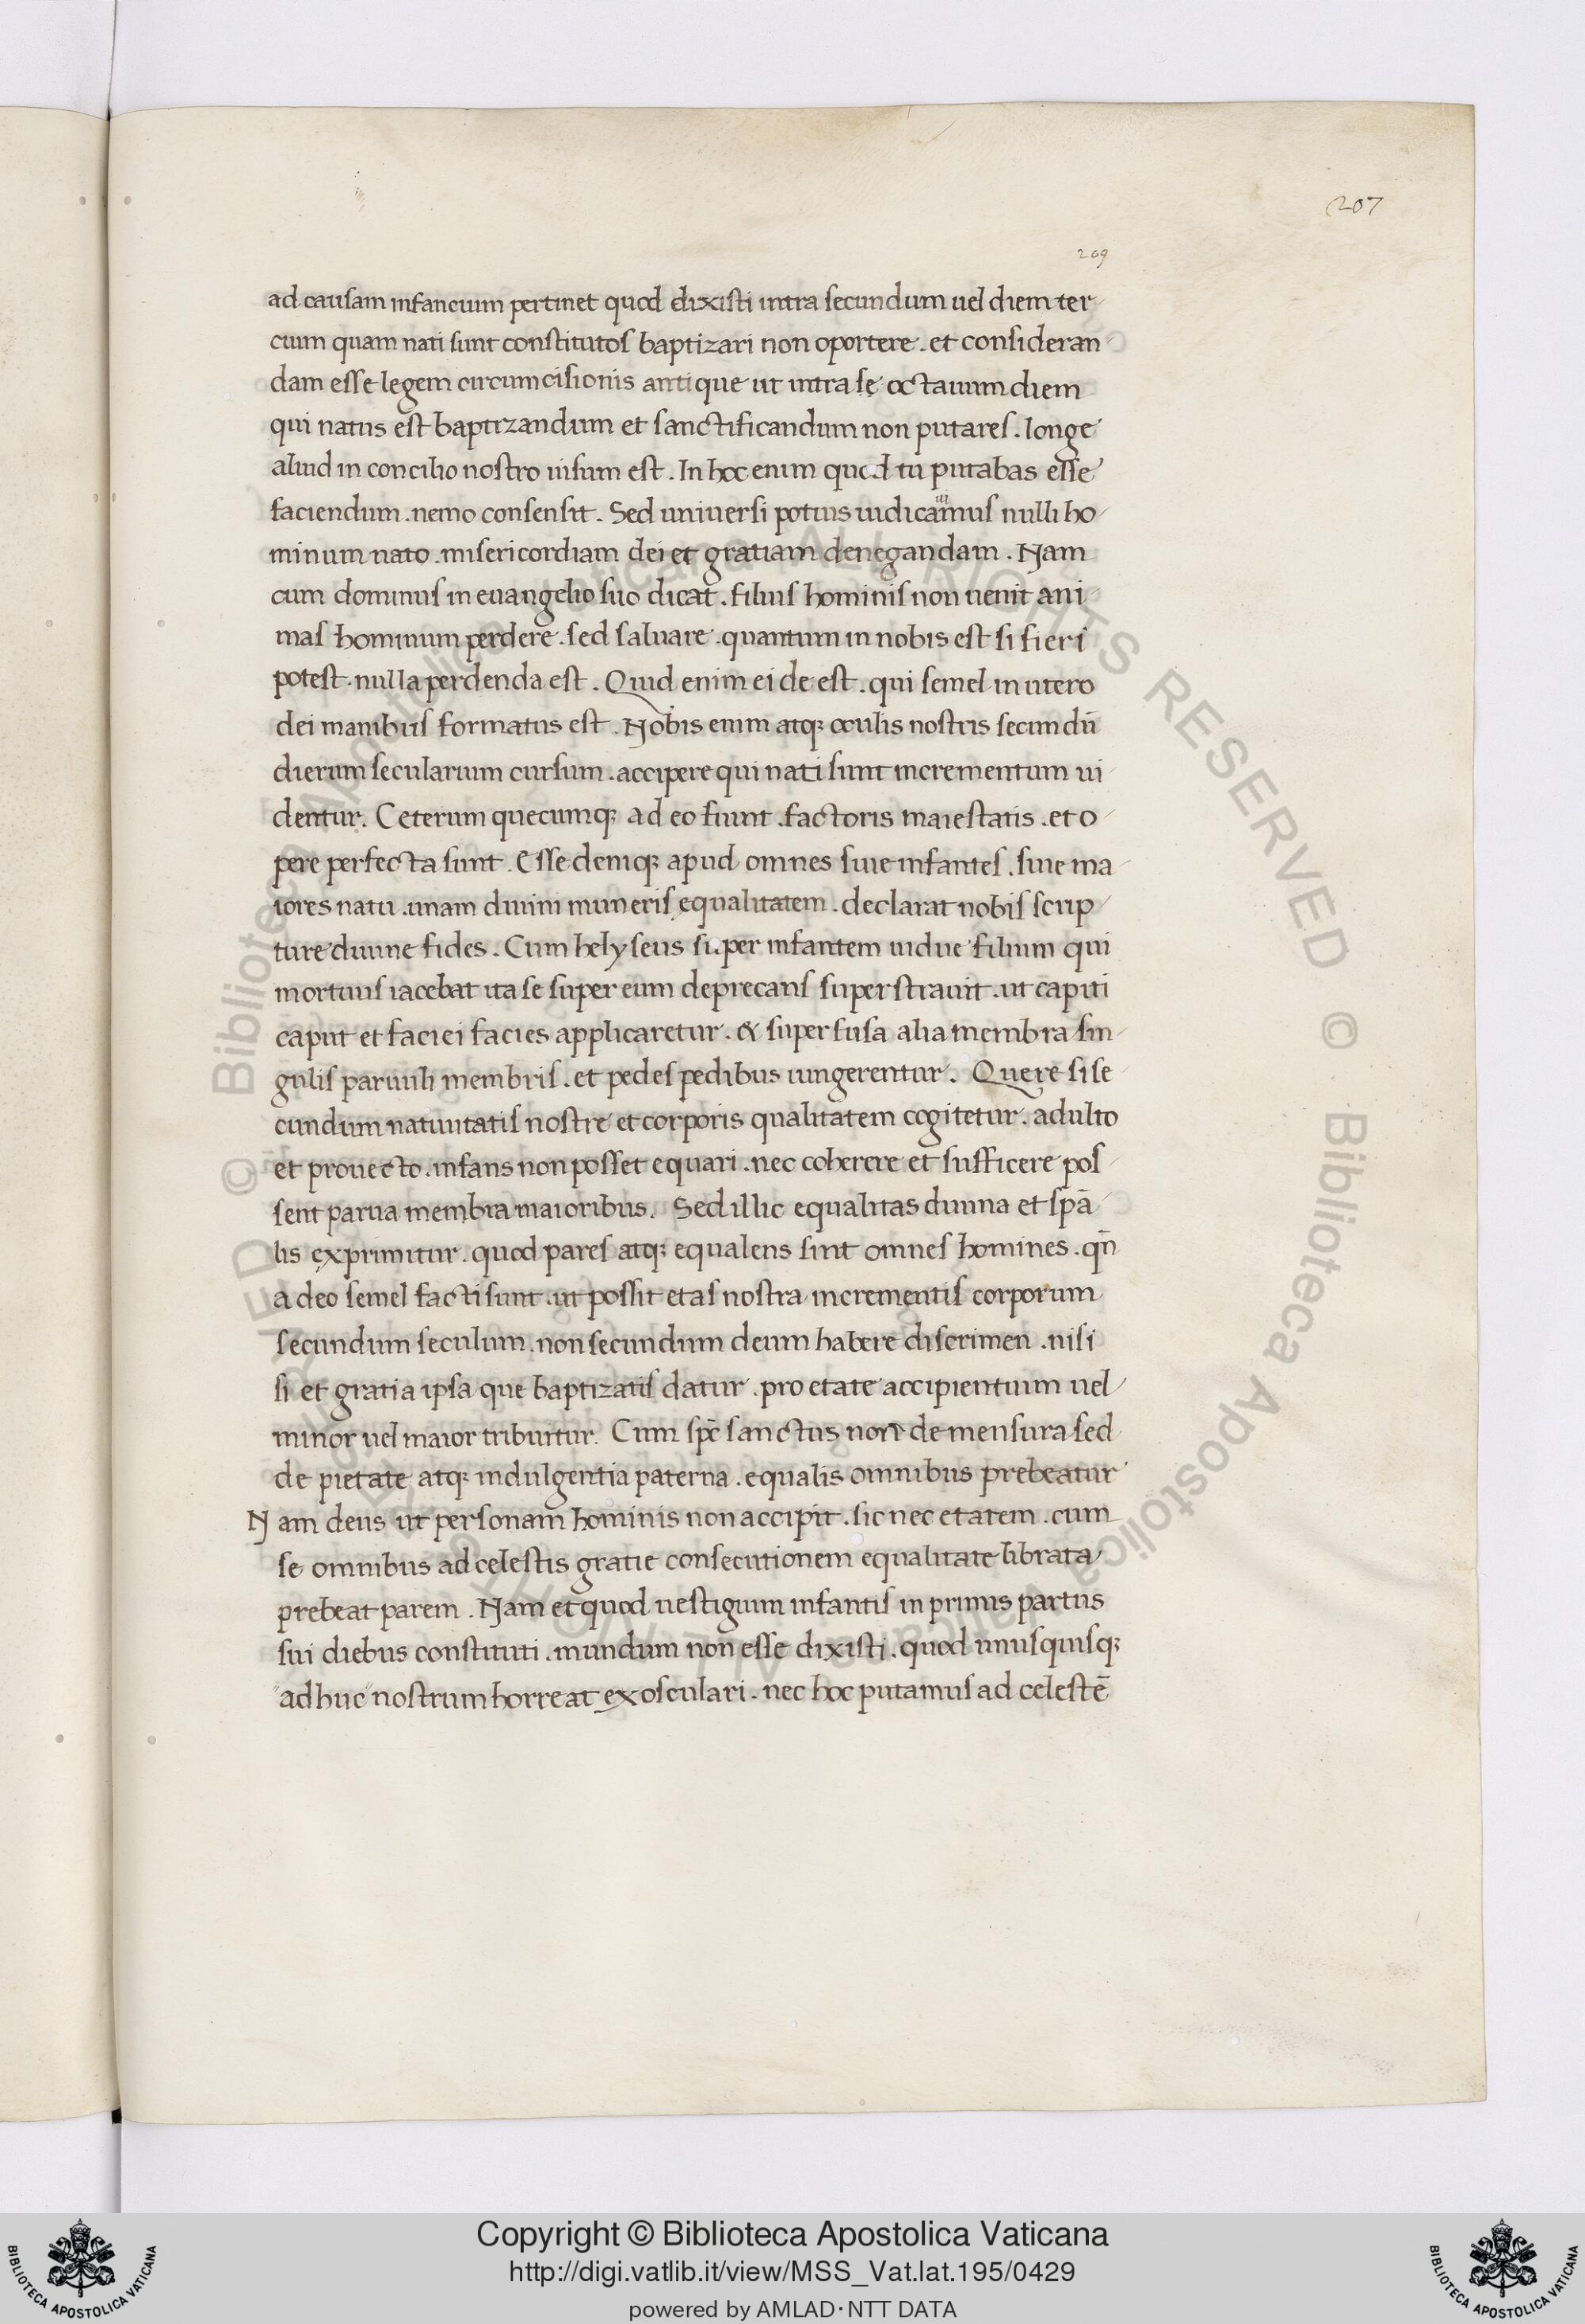 207
209
ad causam infancium pertinet quod dixisti intra secundum uel diem ter
cium quam nati sunt constitutos baptizari non oportere. et consideran
dam esse legem circumcisionis antique ut intra se octauum diem
qui natus est baptizandum et sanctificandum non putares. longe
aliud in concilio nostro uisum est. In hoc enim quod tu putabas esse
faciendum. nemo consensit. Sed uniuersi potius iudicamus nulli ho
minum nato. misericordiam dei et gratiam denegandam. Nam
cum dominus in euangelio suo dicat. filius hominis non uenit ani
mas hominum perdere. sed saluare. quantum in nobis est si fieri
potest. nulla perdenda est. Quid enim ei de est. qui semel in utero
dei manibus formatus est. Nobis enim atq; oculis nostris secundū
dierum secularium cursum. accipere qui nati sunt incrementum ui
dentur. Ceterum quecumq; ad eo fiunt. factoris maiestatis. et o
pere perfecta sunt. Esse deniq; apud omnes siue infantes. siue ma
iores natu. unam diuini muneris equalitatem. declarat nobis scrip
ture diuine fides. Cum helyseus super infantem uidue filium qui
mortuus iacebat ita se super eum deprecans superstrauit. ut capiti
caput et faciei facies applicaretur. & superfusa alia membra sin
gulis paruuli membris. et pedes pedibus iungerentur. Quere si se
cundum natiuitatis nostre et corporis qualitatem cogitetur. adulto
et prouecto. infans non posset equari. nec coherere et sufficere pos
sent parua membra maioribus. Sed illic equalitas diuina et spā
lis exprimitur. quod pares atq; equalens sint omnes homines. qn̄
a deo semel facti sunt. ut possit etas nostra incrementis corporum
secundum seculum. non secundum deum habere discrimen. nisi
si et gratia ipsa que baptizatis datur. pro etate accipientium uel
minor uel maior tribuitur. Cum sp̄c sanctus non de mensura sed
de pietate atq; indulgentia paterna. equalis omnibus prebeatur
Nam deus ut personam hominis non accipit. sic nec etatem. cum
se omnibus ad celestis gratie consecutionem equalitate librata
prebeat parem. Nam et quod uestigium infantis in primis partus
sui diebus constituti. mundum non esse dixisti. quod unusquisq;
"adhuc" nostrum horreat exosculari. nec hoc putamus ad celestē
Copyright © Biblioteca Apostolica Vaticana
http://digi.vatlib.it/view/MSS_Vat.lat.195/0429
powered by AMLAD·NTT DATA
BIBLIOTECA APOSTOLICA VATICANA
BIBLIOTECA APOSTOLICA VATICANA
© Biblioteca Apostolica Vaticana ALL RIGHTS RESERVED
© Biblioteca Apostolica Vaticana ALL RIGHTS RESERVED